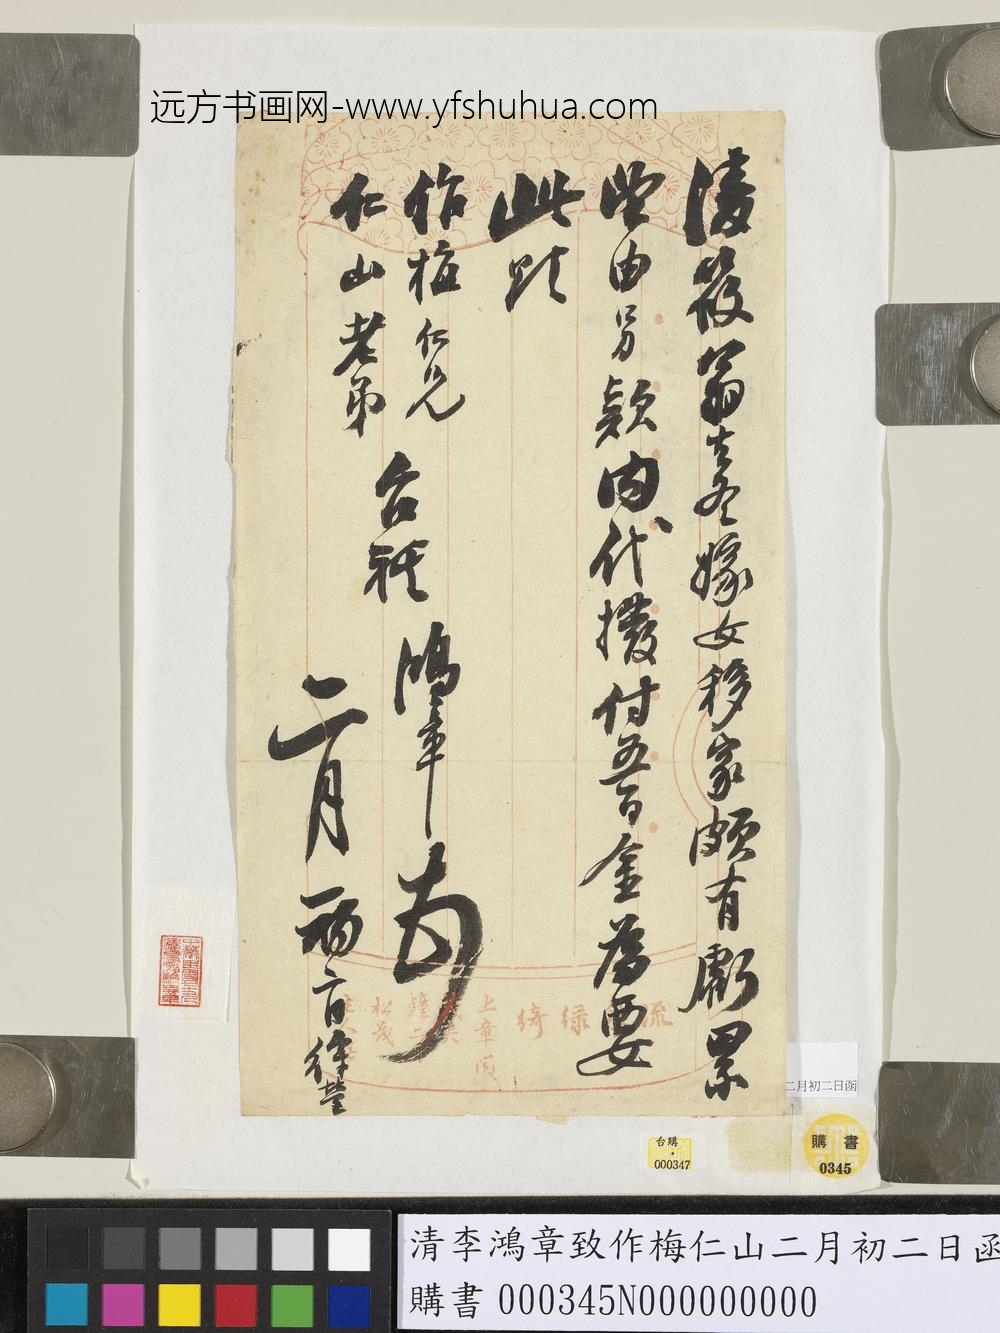 远方书画网-www.yfshuhua.com
凌筱翁去冬嫁女移家頗有虧累
望由另款内代撥付五百金為要
此頌
作梅仁兄
仁山老弟
台祺 鴻章
二月初二日
流綠綺
上章
松茂
二月初二日函
台購
000347
購書
0345
清李鴻章致作梅仁山二月初二日函
購書000345N000000000